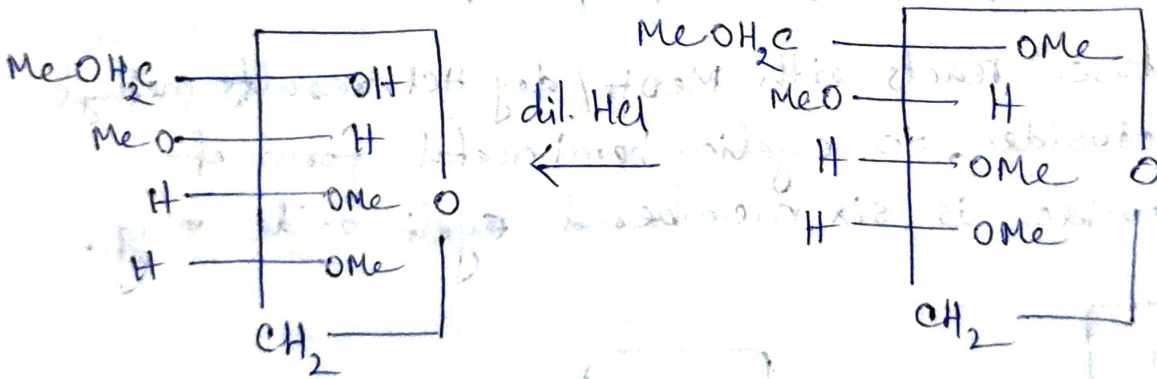 MeOH₂C OH
MeO H
H OMe O
H OMe
CH₂
dil. HCl
MeOH₂C OMe
MeO H
H OMe O
H OMe
CH₂